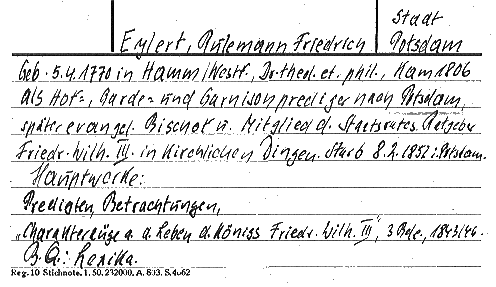 Stadt
Eylert, Rulemann Friedrich Potsdam
Geb. 5.4.1770 in Hamm/Westf., Dr. theol. et. phil., Kam 1806
als Hof-, Garde- und Garnisonprediger nach Potsdam,
später evangel. Bischof u. Mitglied d. Staatsrates. Ratgeber
Friedr. Wilh. III. in kirchlichen Dingen. Starb 8.2.1852 i. Potsdam.
Hauptwerke:
Predigten, Betrachtungen,
„Charakterzüge a. d. Leben d. Königs Friedr. Wilh. III", 3 Bde., 1843/46.
B. Q.: Lexika.
Reg. 10 Stichnote. 1. 50. 232000. A. 803. S. 4062